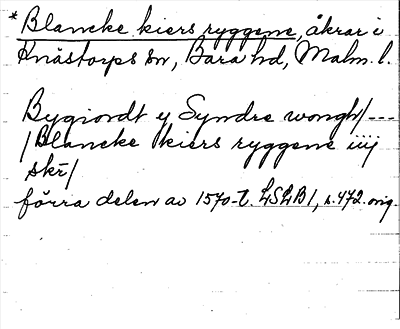 * Blancke kiers ryggene, åkrar i
Knästorps sn, Bara hd, Malm. l.
Bygiordt y Syndre wongh/---
/Blancke kiers ryggene iiij
skr̄/
förra delen av 1570-t. LSLB1, s.472. orig.